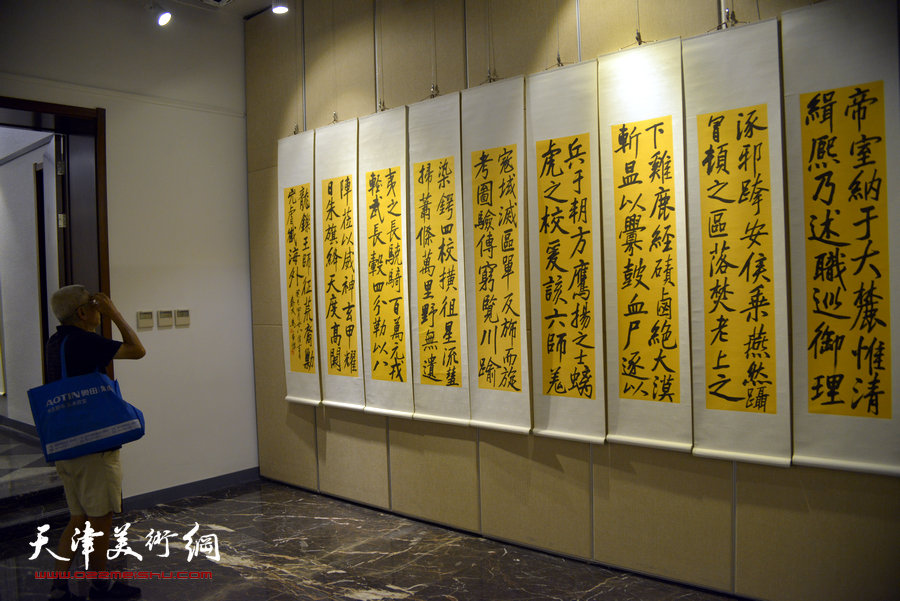 帝室納于大麓惟清
緝熙乃述職巡御理
涿邪跨安侯乘燕然躡
冒頓之區落焚老上之
下雞鹿經磧鹵絕大漠
斬温以釁鼓血尸逐以
兵于朔方鷹揚之士螭
虎之校爰該六師
寇域滅區單反旆而旋
考圖驗傳窮覽川踰
染鍔四校橫徂星流彗
掃蕭條萬里野無遺
夷之長驍騎百萬元戎
輕武長轂四分勒以八
陣莅以威神玄甲耀
日朱旗絳天度高闕
鑠王師征荒裔勦
凶虐截海外
AOTIN 奥田
天津美術網
www.022meishu.com